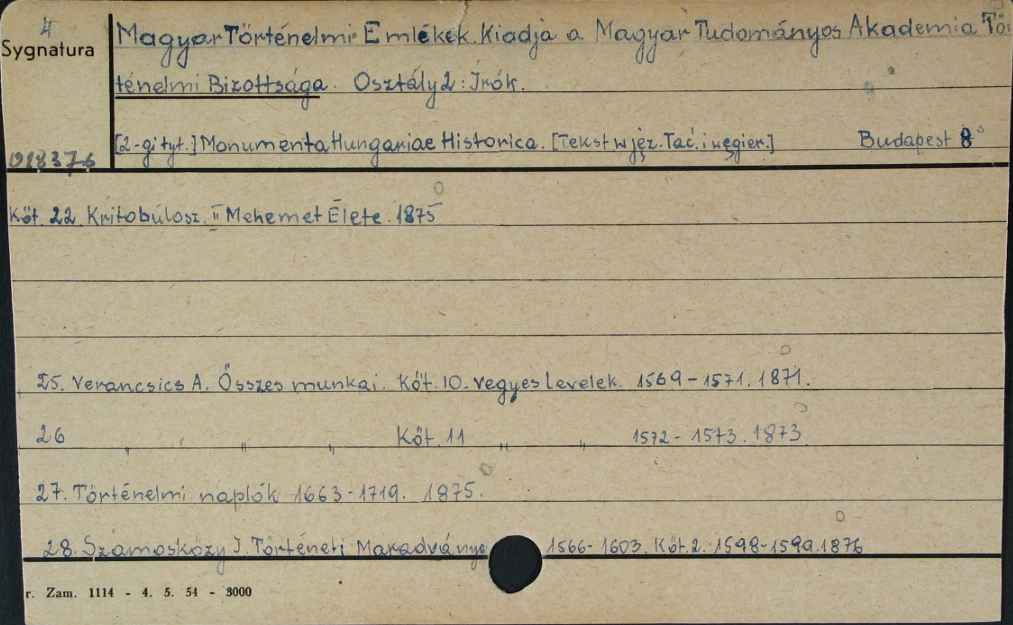 4
Sygnatura
Magyar Történelmi Emlékek. Kiadja a Magyar Tudományos Akademia Tör
ténelmi Bizottsága. Osztály 2: Irók.
[2-gi tyt.] Monumenta Hungariae Historica. [Tekst w jęz. łać. i węgier.] Budapest 8°
018376
Köt. 22. Kritobúlosz. II Mehemet Élete. 1875
25. Verancsics A. Összes munkai. Köt. 10. Vegyes levelek. 1569-1571. 1871.
26 " " " Köt. 11 " " 1572-1573. 1873
27. Történelmi naplók 1663-1719. 1875.
28. Szamosközy I. Történeti Maradványe 1566-1603. Köt. 2. 1598-1599. 1876
r. Zam. 1114 - 4. 5. 54 - 3000